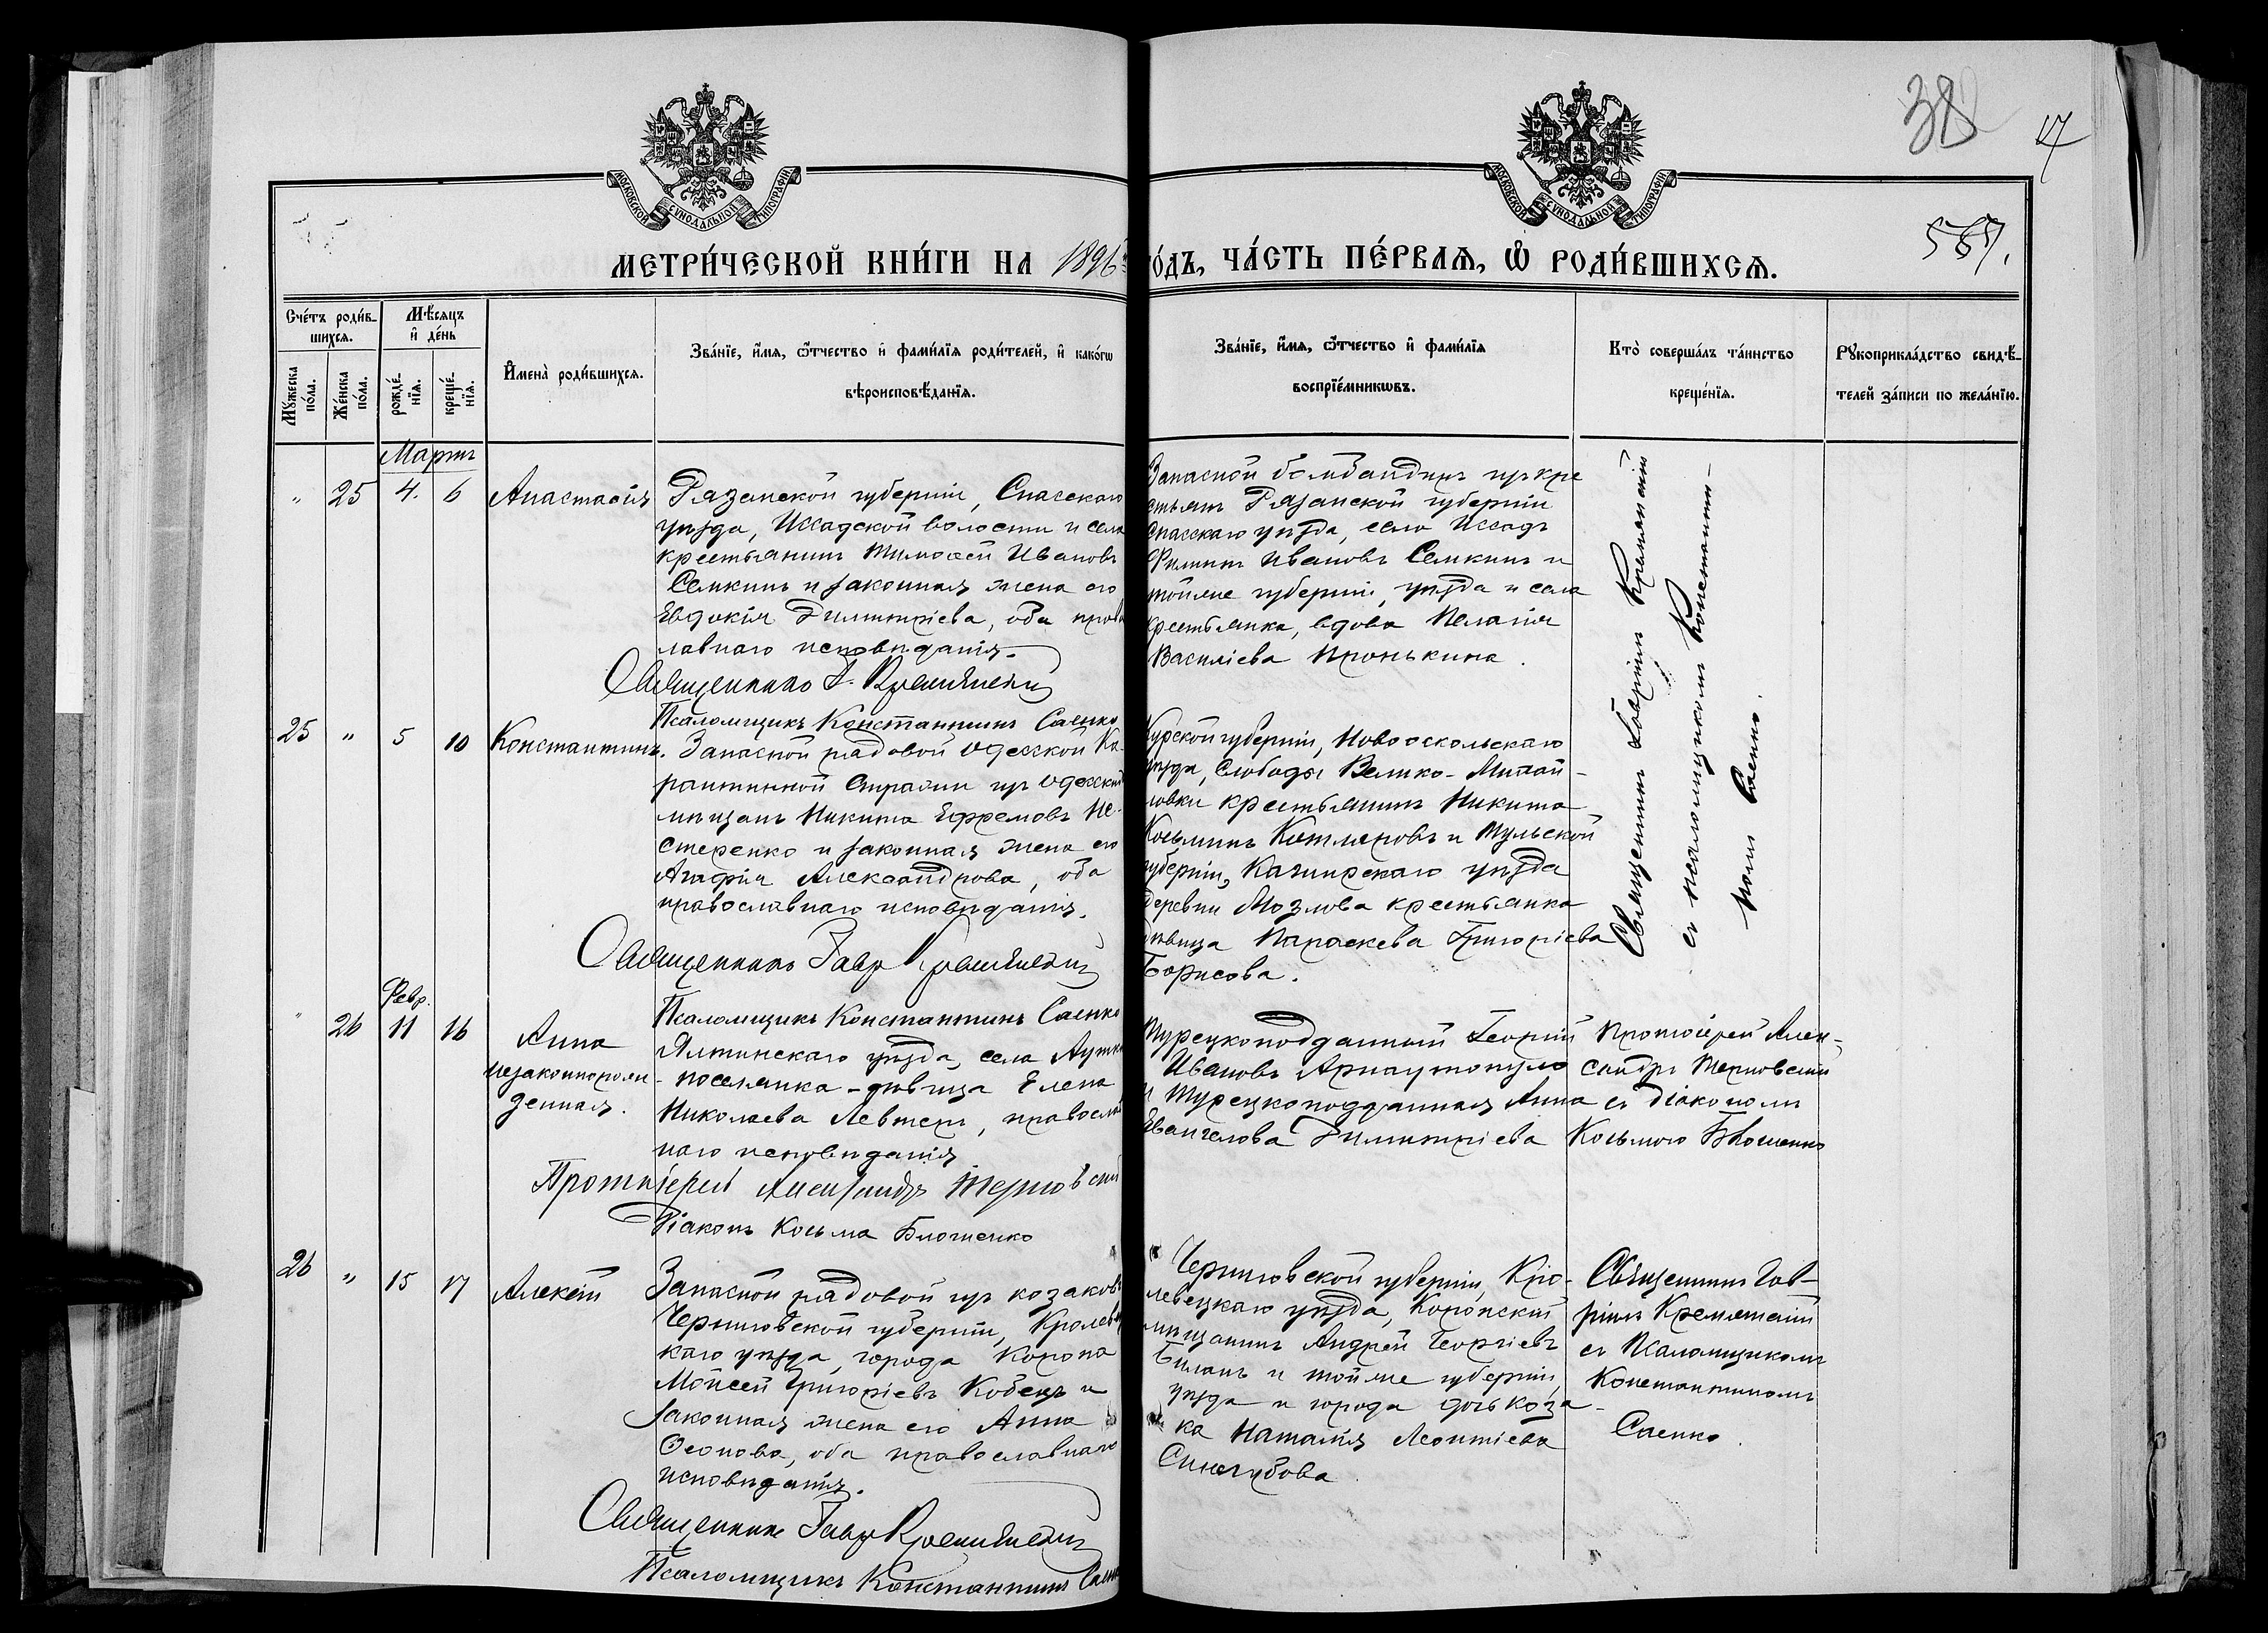 38
17
567.
МОСКОВСКОЙ СУНОДАЛЬНОЙ ТИПОГРАФІИ
МОСКОВСКОЙ СУНОДАЛЬНОЙ ТИПОГРАФІИ
МЕТРИ́ЧЕСКОЙ КНИ́ГИ НА 1896
О́ДЪ, ЧА́СТЬ ПЕ́РВАѦ, Ѡ҆ РОДИ́ВШИХСѦ.
Сче́тъ роди́в-
шихсѧ.
Мѣ́сѧцъ
и҆ де́нь
Мꙋ́жеска
по́ла.
Же́нска
по́ла.
рожде́-
нїѧ.
креще́-
нїѧ.
И҆мена̀ роди́вшихсѧ.
Зва́нїе, и҆́мѧ, ѻ҆́тчество и҆ фами́лїѧ роди́телей, и҆ како́гѡ
вѣроисповѣ́данїѧ.
Зва́нїе, и҆́мѧ, ѻ҆́тчество и҆ фами́лїѧ
воспрїе́мникѡвъ.
Кто̀ соверша́лъ та́инство
креще́нїѧ.
Рꙋкоприкла́дство свидѣ́-
телей за́писи по жела́нїю.
Мартъ
" 25 4. 6 Анастасія
Рязанской губерніи, Спасскаго
уѣзда, Исадской волости и села
крестьянинъ Тимоѳей Ивановъ
Семкинъ и законная жена его
Евдокія Димитріева, оба право
славнаго исповѣданія.
Священникъ Г. Кремянскій
Псаломщикъ Константинъ Саенко
Запасной бомбандиръ изъ кре
стьянъ Рязанской губерніи
Спасскаго уѣзда, села Иссадъ
Филиппъ Ивановъ Семкинъ и
тойже губерніи, уѣзда и села
крестьянка, вдова Пелагія
Василіева Пронькина.
Священникъ Гавріилъ Кремянскій
съ псаломщикомъ Константи-
номъ Саенко.
25 " 5 10 Константинъ.
Запасной рядовой Одесской Ка-
рантинной Стражи изъ Одесскихъ
мѣщанъ Никита Ефремовъ Не-
стеренко и законная жена его
Агафія Александрова, оба
православнаго исповѣданія.
Священникъ Гавр Кремянскій
Псаломщикъ Константинъ Саенко
Курской губерніи, Новооскольскаго
уѣзда, Слободы Велико-Михай-
ловки крестьянинъ Никита
Косьминъ Котляровъ и Тульской
губерніи, Каширскаго уѣзда
деревни Мозлова крестьянка
дѣвица Параскева Григоріева
Борисова.
Февр.
" 26 11 16 Анна
незаконнорож-
денная.
Ялтинскаго уѣзда, села Аутки
поселянка-дѣвица Елена
Николаева Левтеръ, православ
наго исповѣданія
Протоіерей Александръ Терновскій
Діаконъ Косьма Блошенко
Турецкоподданный Георгій
Ивановъ Арнаутопуло
и Турецкоподданная Анна
Евангелова Димитріева
Протоіерей Алек-
сандръ Терновскій
съ діакономъ
Косьмою Блошенко
26 " 15 17 Алексій
Запасной рядовой изъ козаковъ
Черниговской губерніи, Кролевец
каго уѣзда, города Коропа
Моисей Григоріевъ Кобецъ и
законная жена его Анна
Осопова, оба православнаго
исповѣданія.
Священникъ Гавр Кремянскій
Псаломщикъ Константинъ Саенко
Черниговской губерніи, Кро-
левецкаго уѣзда, Коропскій
мѣщанинъ Андрей Георгіевъ
Биланъ и тойже губерніи,
уѣзда и города дочь коза-
ка Наталія Леонтіева
Синегубова
Священникъ Гав-
ріилъ Кремянскій
съ Псаломщикомъ
Константиномъ
Саенко.